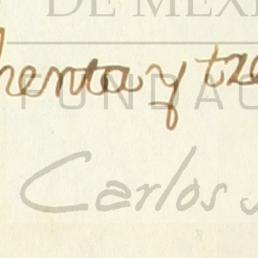 DE MEXI
henta y tre
FUNDAC
Carlos